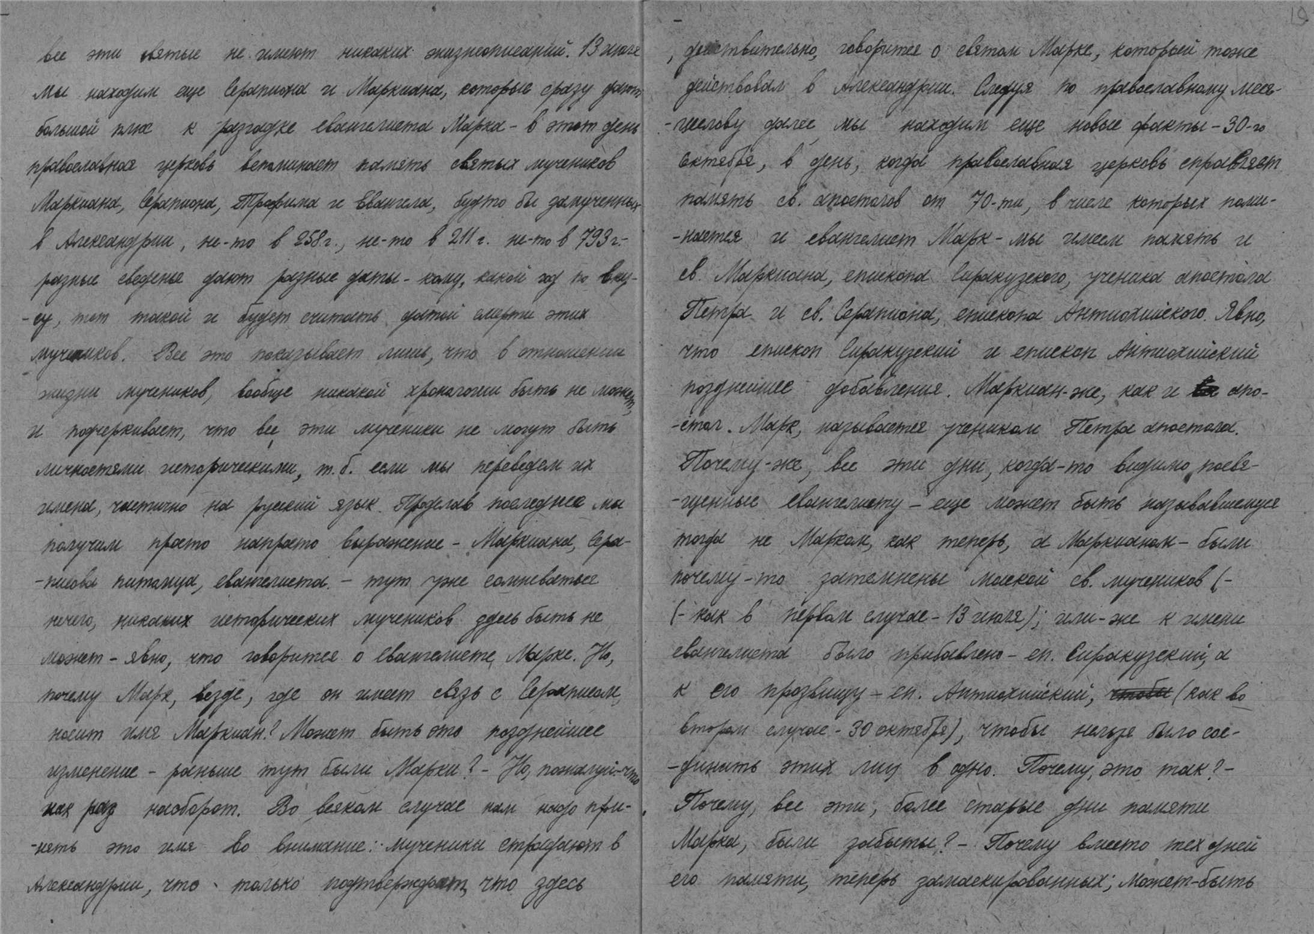 все эти святые не имеют никаких жизнеописаний. 13 июля
мы находим еще Серапиона и Маркиана, которые сразу дают
большой плюс к разгадке евангелиста Марка - в этот день
православная церковь вспоминает память святых мучеников
Маркиана, Серапиона, Трофима и Евангела, будто бы замученных
в Александрии, не-то в 258 г., не-то в 211 г. не-то в 793 г. -
разные сведенья дают разные даты - кому, какой год по вку-
-су, тот такой и будет считать датой смерти этих
мучеников. Все это показывает лишь, что в отношении
жизни мучеников, вообще никакой хронологии быть не может,
и подчеркивает, что все эти мученики не могут быть
личностями историческими, т.б. если мы переведем их
имена, частично на русский язык. Проделав последнее мы
получим просто напросто выражение - Маркиана, Сера-
-писова питомца, евангелиста - тут уже сомневаться
нечего, никаких исторических мучеников здесь быть не
может - явно, что говорится о евангелисте Марке. Но,
почему Марк, везде, где он имеет связь с Сераписом,
носит имя Маркиан? Может быть это позднейшее
изменение - раньше тут были Марки? - Но, пожалуй-что
как раз наоборот. Во всяком случае нам надо при-
-нять это имя во внимание: - мученики страдают в
Александрии, что только подтверждает, что здесь
15
, действительно, говорится о святом Марке, который тоже
действовал в Александрии. Следуя по православному меся-
-цеслову далее мы находим еще новые факты - 30-го
октября, в день, когда православная церковь справляет
память св. апостолов от 70-ти, в числе которых поми-
-нается и евангелист Марк - мы имеем память и
св. Маркиана, епископа Сиракузского, ученика апостола
Петра и св. Серапиона, епископа Антиохийского. Явно,
что епископ Сиракузский и епископ Антиохийский
позднейшее добавления. Маркиан-же, как и апо-
-стол. Марк, называется учеником Петра апостола.
Почему-же, все эти дни, когда-то видимо, посвя-
-щенные евангелисту - еще может быть называвшемуся
тогда не Марком, как теперь, а Маркианом - были
почему-то затемнены маской св. мучеников (-
(- как в первом случае - 13 июля); или-же к имени
евангелиста было прибавлено - еп. Сиракузский, а
к его прозвищу - еп. Антиохийский, чтобы (как во
втором случае - 30 октября), чтобы нельзя было сое-
-динить этих лиц в одно. Почему, это так? -
Почему, все эти, более старые дни памяти
Марка, были забыты? - Почему вместо тех дней
его памяти, теперь замаскированных; Может-быть